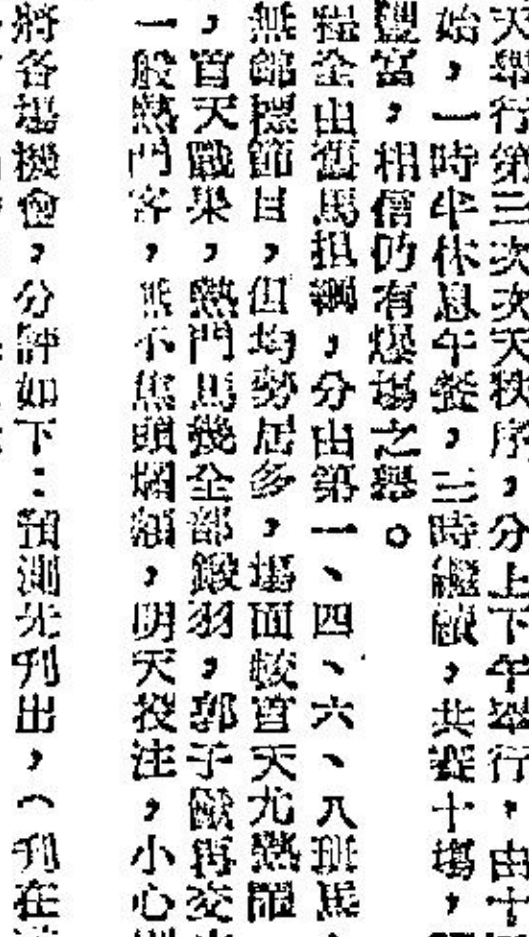 天舉行第三次次天秩序，分上下午舉行，由十
始，一時半休息午餐，三時繼續，共賽十塲，
豐富，相信仍有爆塲之舉。
程全由舊馬担綱，分由第一、四、六、八班馬
無錦標節目，但均勢居多，塲面較首天尤熱鬧
，首天戰果，熱門馬幾全部鎩羽，郭子猷再交
一般熱門客，無不焦頭爛額，明天投注，小心
將各塲機會，分評如下：預測先刋出，（刋在